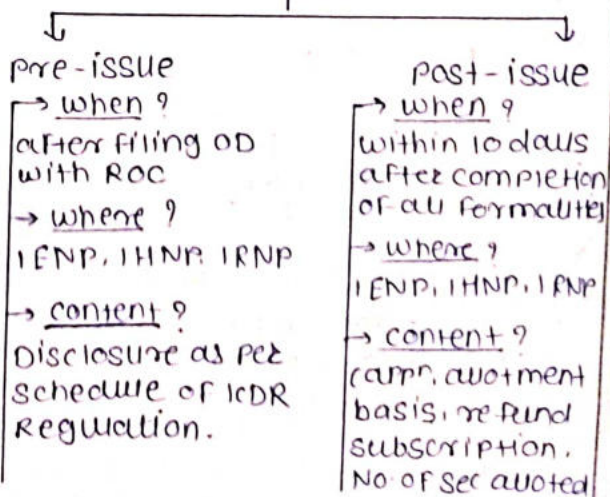 pre-issue
→ when ?
after filing OD
with ROC
→ where ?
1 ENP, 1 HNP, 1 RNP
→ content ?
Disclosure as per
schedule of ICDR
Regulation.
post-issue
→ when ?
within 10 days
after completion
of all formalities
→ where ?
1 ENP, 1 HNP, 1 RNP
→ content ?
allotment
basis, refund
subscription.
No. of sec alloted